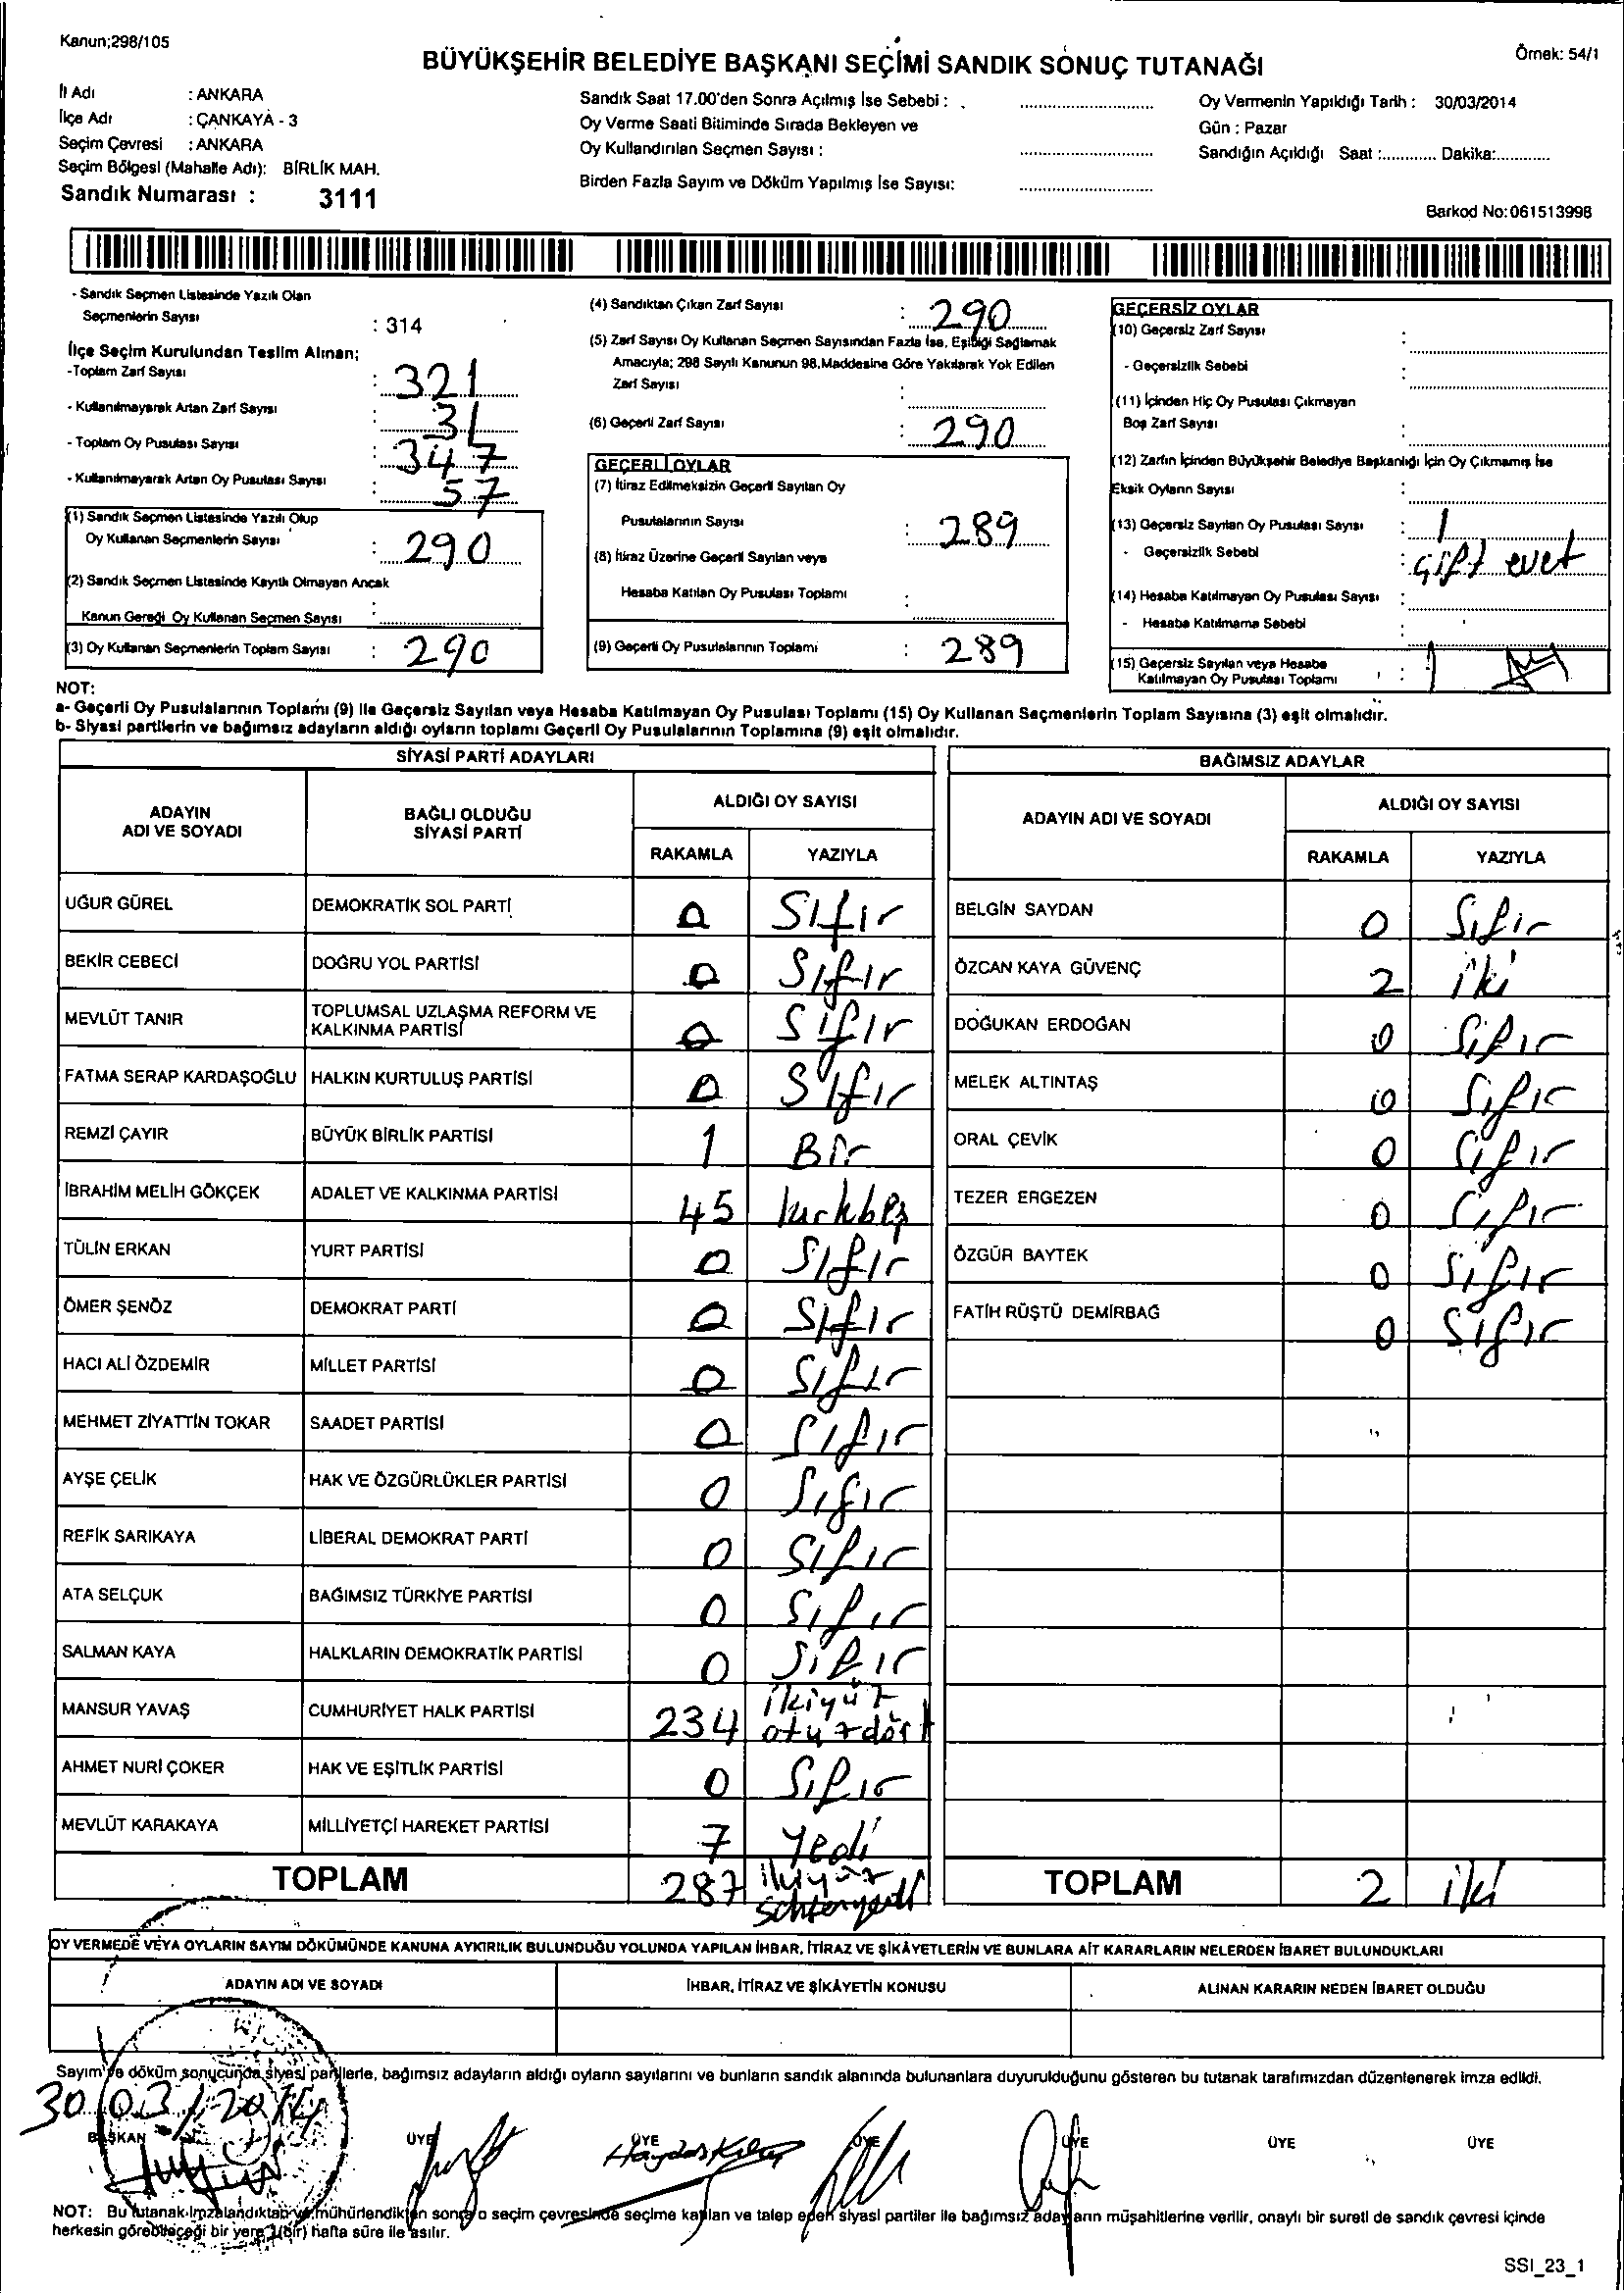 Kanun;298/105
BÜYÜKŞEHİR BELEDİYE BAŞKANI SEÇİMİ SANDIK SONUÇ TUTANAĞI
Örnek: 54/1
İl Adı : ANKARA
İlçe Adı : ÇANKAYA - 3
Seçim Çevresi : ANKARA
Seçim Bölgesi (Mahalle Adı): BİRLİK MAH.
Sandık Numarası : 3111
Sandık Saat 17.00'den Sonra Açılmış İse Sebebi :
Oy Verme Saati Bitiminde Sırada Bekleyen ve
Oy Kullandırılan Seçmen Sayısı :
Birden Fazla Sayım ve Döküm Yapılmış İse Sayısı:
Oy Vermenin Yapıldığı Tarih : 30/03/2014
Gün : Pazar
Sandığın Açıldığı Saat :............ Dakika:............
Barkod No:061513998
- Sandık Seçmen Listesinde Yazılı Olan
Seçmenlerin Sayısı : 314
İlçe Seçim Kurulundan Teslim Alınan;
-Toplam Zarf Sayısı : 321
- Kullanılmayarak Artan Zarf Sayısı : 31
- Toplam Oy Pusulası Sayısı : 347
- Kullanılmayarak Artan Oy Pusulası Sayısı : 57
(1) Sandık Seçmen Listesinde Yazılı Olup
Oy Kullanan Seçmenlerin Sayısı : 290
(2) Sandık Seçmen Listesinde Kayıtlı Olmayan Ancak
Kanun Gereği Oy Kullanan Seçmen Sayısı :
(3) Oy Kullanan Seçmenlerin Toplam Sayısı : 290
(4) Sandıktan Çıkan Zarf Sayısı : 290
(5) Zarf Sayısı Oy Kullanan Seçmen Sayısından Fazla İse, Eşitliği Sağlamak
Amacıyla; 298 Sayılı Kanunun 98.Maddesine Göre Yakılarak Yok Edilen
Zarf Sayısı :
(6) Geçerli Zarf Sayısı : 290
GEÇERLİ OYLAR
(7) İtiraz Edilmeksizin Geçerli Sayılan Oy
Pusulalarının Sayısı : 289
(8) İtiraz Üzerine Geçerli Sayılan veya
Hesaba Katılan Oy Pusulası Toplamı :
(9) Geçerli Oy Pusulalarının Toplamı : 289
GEÇERSİZ OYLAR
(10) Geçersiz Zarf Sayısı :
- Geçersizlik Sebebi :
(11) İçinden Hiç Oy Pusulası Çıkmayan
Boş Zarf Sayısı :
(12) Zarfın İçinden Büyükşehir Belediye Başkanlığı İçin Oy Çıkmamış İse
Eksik Oyların Sayısı :
(13) Geçersiz Sayılan Oy Pusulası Sayısı : 1
- Geçersizlik Sebebi : Çift evet
(14) Hesaba Katılmayan Oy Pusulası Sayısı :
- Hesaba Katılmama Sebebi :
(15) Geçersiz Sayılan veya Hesaba
Katılmayan Oy Pusulası Toplamı : 1
NOT:
a- Geçerli Oy Pusulalarının Toplamı (9) ile Geçersiz Sayılan veya Hesaba Katılmayan Oy Pusulası Toplamı (15) Oy Kullanan Seçmenlerin Toplam Sayısına (3) eşit olmalıdır.
b- Siyasi partilerin ve bağımsız adayların aldığı oyların toplamı Geçerli Oy Pusulalarının Toplamına (9) eşit olmalıdır.
SİYASİ PARTİ ADAYLARI
ADAYIN ADI VE SOYADI
BAĞLI OLDUĞU SİYASİ PARTİ
ALDIĞI OY SAYISI
RAKAMLA YAZIYLA
UĞUR GÜREL DEMOKRATİK SOL PARTİ 0 Sıfır
BEKİR CEBECİ DOĞRU YOL PARTİSİ 0 Sıfır
MEVLÜT TANIR TOPLUMSAL UZLAŞMA REFORM VE KALKINMA PARTİSİ 0 Sıfır
FATMA SERAP KARDAŞOĞLU HALKIN KURTULUŞ PARTİSİ 0 Sıfır
REMZİ ÇAYIR BÜYÜK BİRLİK PARTİSİ 1 Bir
İBRAHİM MELİH GÖKÇEK ADALET VE KALKINMA PARTİSİ 45 kırkbeş
TÜLİN ERKAN YURT PARTİSİ 0 Sıfır
ÖMER ŞENÖZ DEMOKRAT PARTİ 0 Sıfır
HACI ALİ ÖZDEMİR MİLLET PARTİSİ 0 Sıfır
MEHMET ZİYATTİN TOKAR SAADET PARTİSİ 0 Sıfır
AYŞE ÇELİK HAK VE ÖZGÜRLÜKLER PARTİSİ 0 Sıfır
REFİK SARIKAYA LİBERAL DEMOKRAT PARTİ 0 Sıfır
ATA SELÇUK BAĞIMSIZ TÜRKİYE PARTİSİ 0 Sıfır
SALMAN KAYA HALKLARIN DEMOKRATİK PARTİSİ 0 Sıfır
MANSUR YAVAŞ CUMHURİYET HALK PARTİSİ 234 ikiyüz otuzdört
AHMET NURİ ÇOKER HAK VE EŞİTLİK PARTİSİ 0 Sıfır
MEVLÜT KARAKAYA MİLLİYETÇİ HAREKET PARTİSİ 7 Yedi
TOPLAM 287 ikiyüz seksenyedi
BAĞIMSIZ ADAYLAR
ADAYIN ADI VE SOYADI
ALDIĞI OY SAYISI
RAKAMLA YAZIYLA
BELGİN SAYDAN 0 Sıfır
ÖZCAN KAYA GÜVENÇ 2 iki
DOĞUKAN ERDOĞAN 0 Sıfır
MELEK ALTINTAŞ 0 Sıfır
ORAL ÇEVİK 0 Sıfır
TEZER ERGEZEN 0 Sıfır
ÖZGÜR BAYTEK 0 Sıfır
FATİH RÜŞTÜ DEMİRBAĞ 0 Sıfır
TOPLAM 2 iki
OY VERMEDE VEYA OYLARIN SAYIM DÖKÜMÜNDE KANUNA AYKIRILIK BULUNDUĞU YOLUNDA YAPILAN İHBAR, İTİRAZ VE ŞİKÂYETLERİN VE BUNLARA AİT KARARLARIN NELERDEN İBARET BULUNDUKLARI
ADAYIN ADI VE SOYADI İHBAR, İTİRAZ VE ŞİKÂYETİN KONUSU ALINAN KARARIN NEDEN İBARET OLDUĞU
Sayım ve döküm sonucunda siyasi partilerle, bağımsız adayların aldığı oyların sayılarını ve bunların sandık alanında bulunanlara duyurulduğunu gösteren bu tutanak tarafımızdan düzenlenerek imza edildi.
30/03/2014
BAŞKAN ÜYE ÜYE ÜYE ÜYE ÜYE ÜYE
NOT: Bu tutanak imzalandıktan ve mühürlendikten sonra o seçim çevresinde seçime katılan ve talep eden siyasi partiler ile bağımsız adayların müşahitlerine verilir, onaylı bir sureti de sandık çevresi içinde
herkesin görebileceği bir yere 1(bir) hafta süre ile asılır.
SSI_23_1